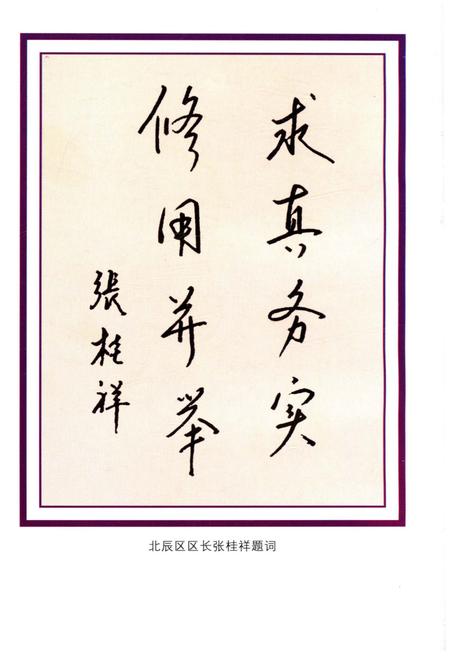 求真务实
修用并举
張桂祥
北辰区区长张桂祥题词